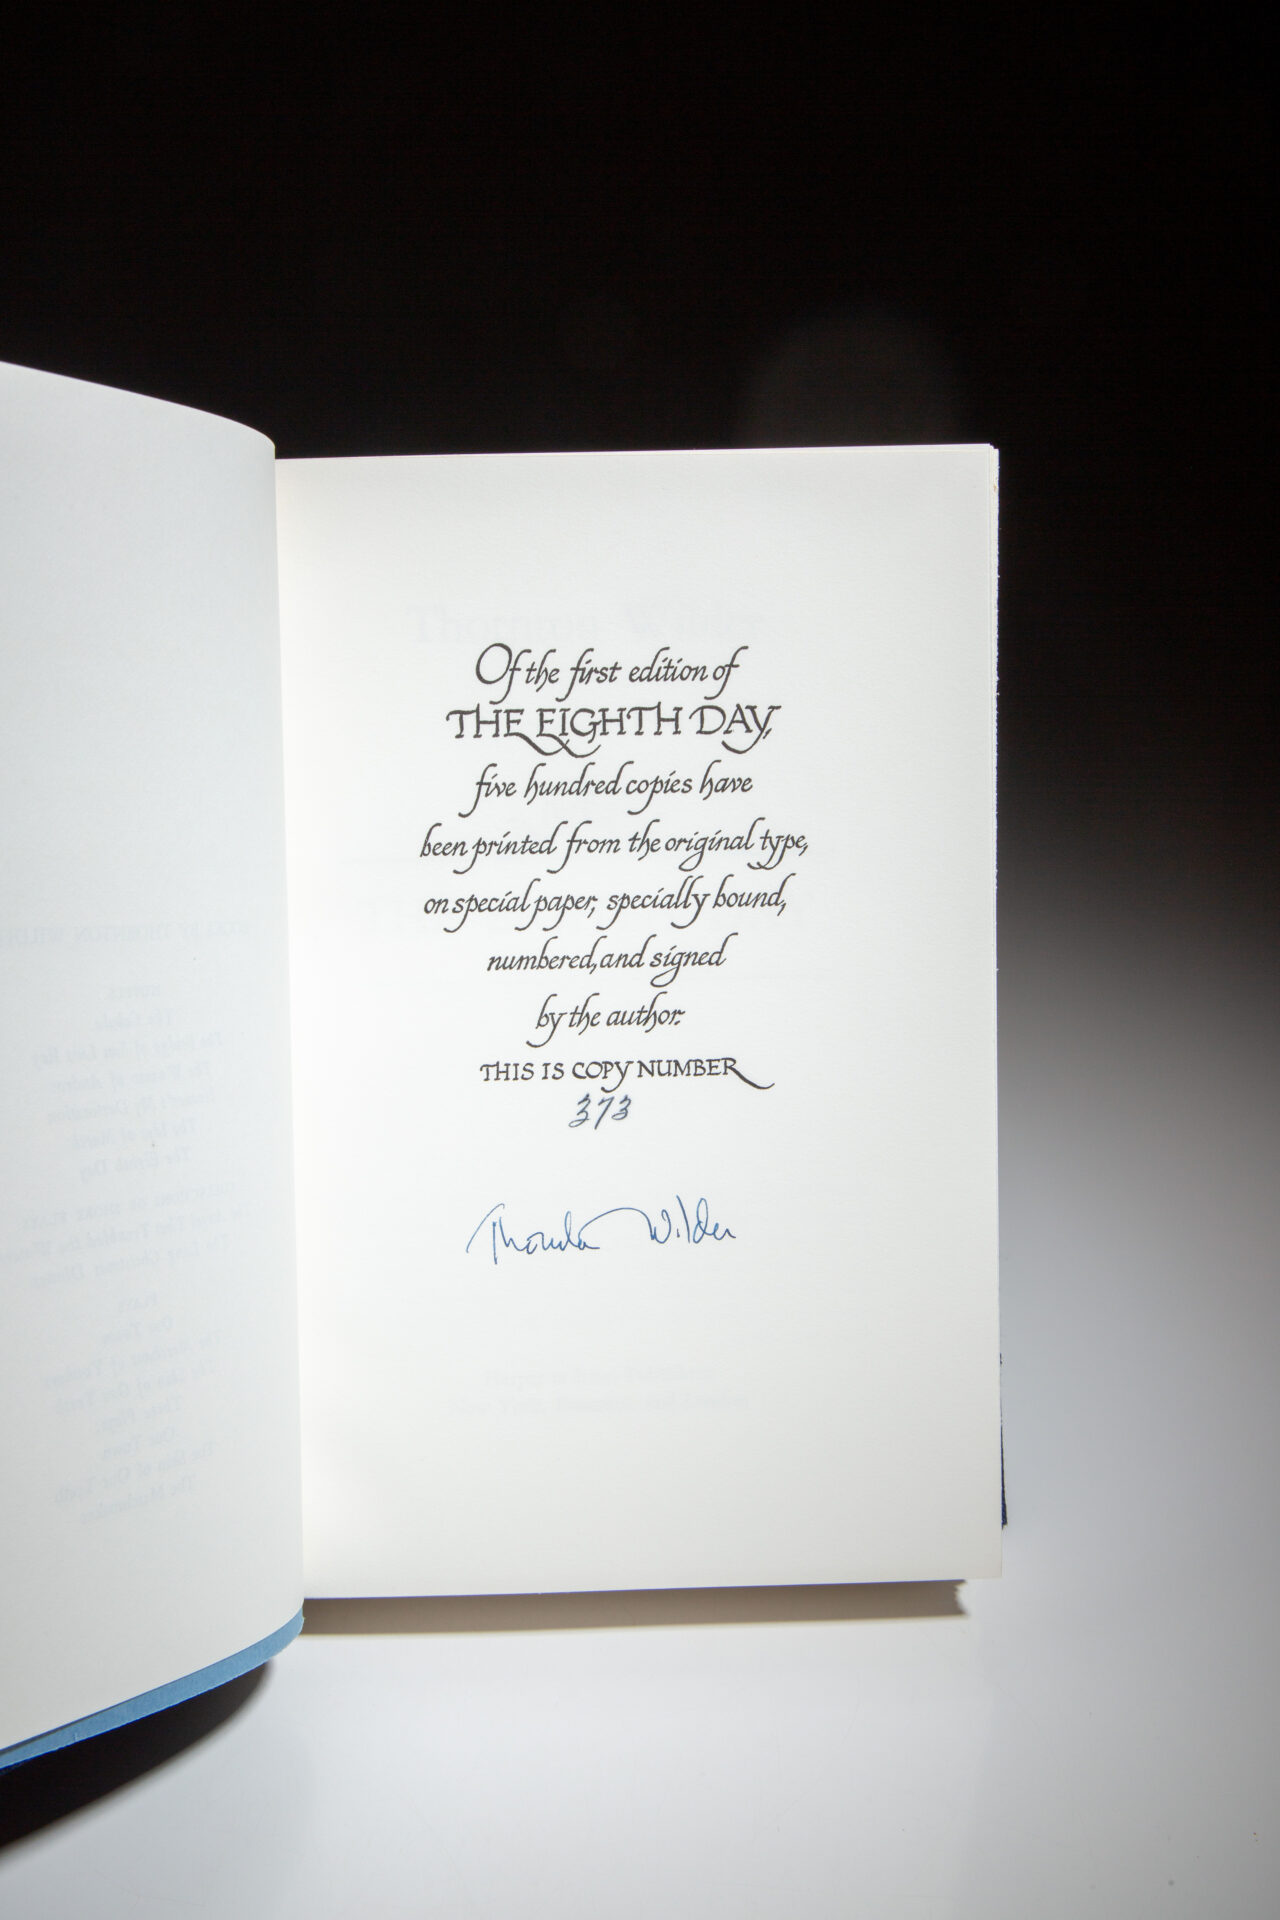 Of the first edition of
THE EIGHTH DAY,
five hundred copies have
been printed from the original type,
on special paper, specially bound,
numbered, and signed
by the author.
THIS IS COPY NUMBER
373
Thornton Wilder